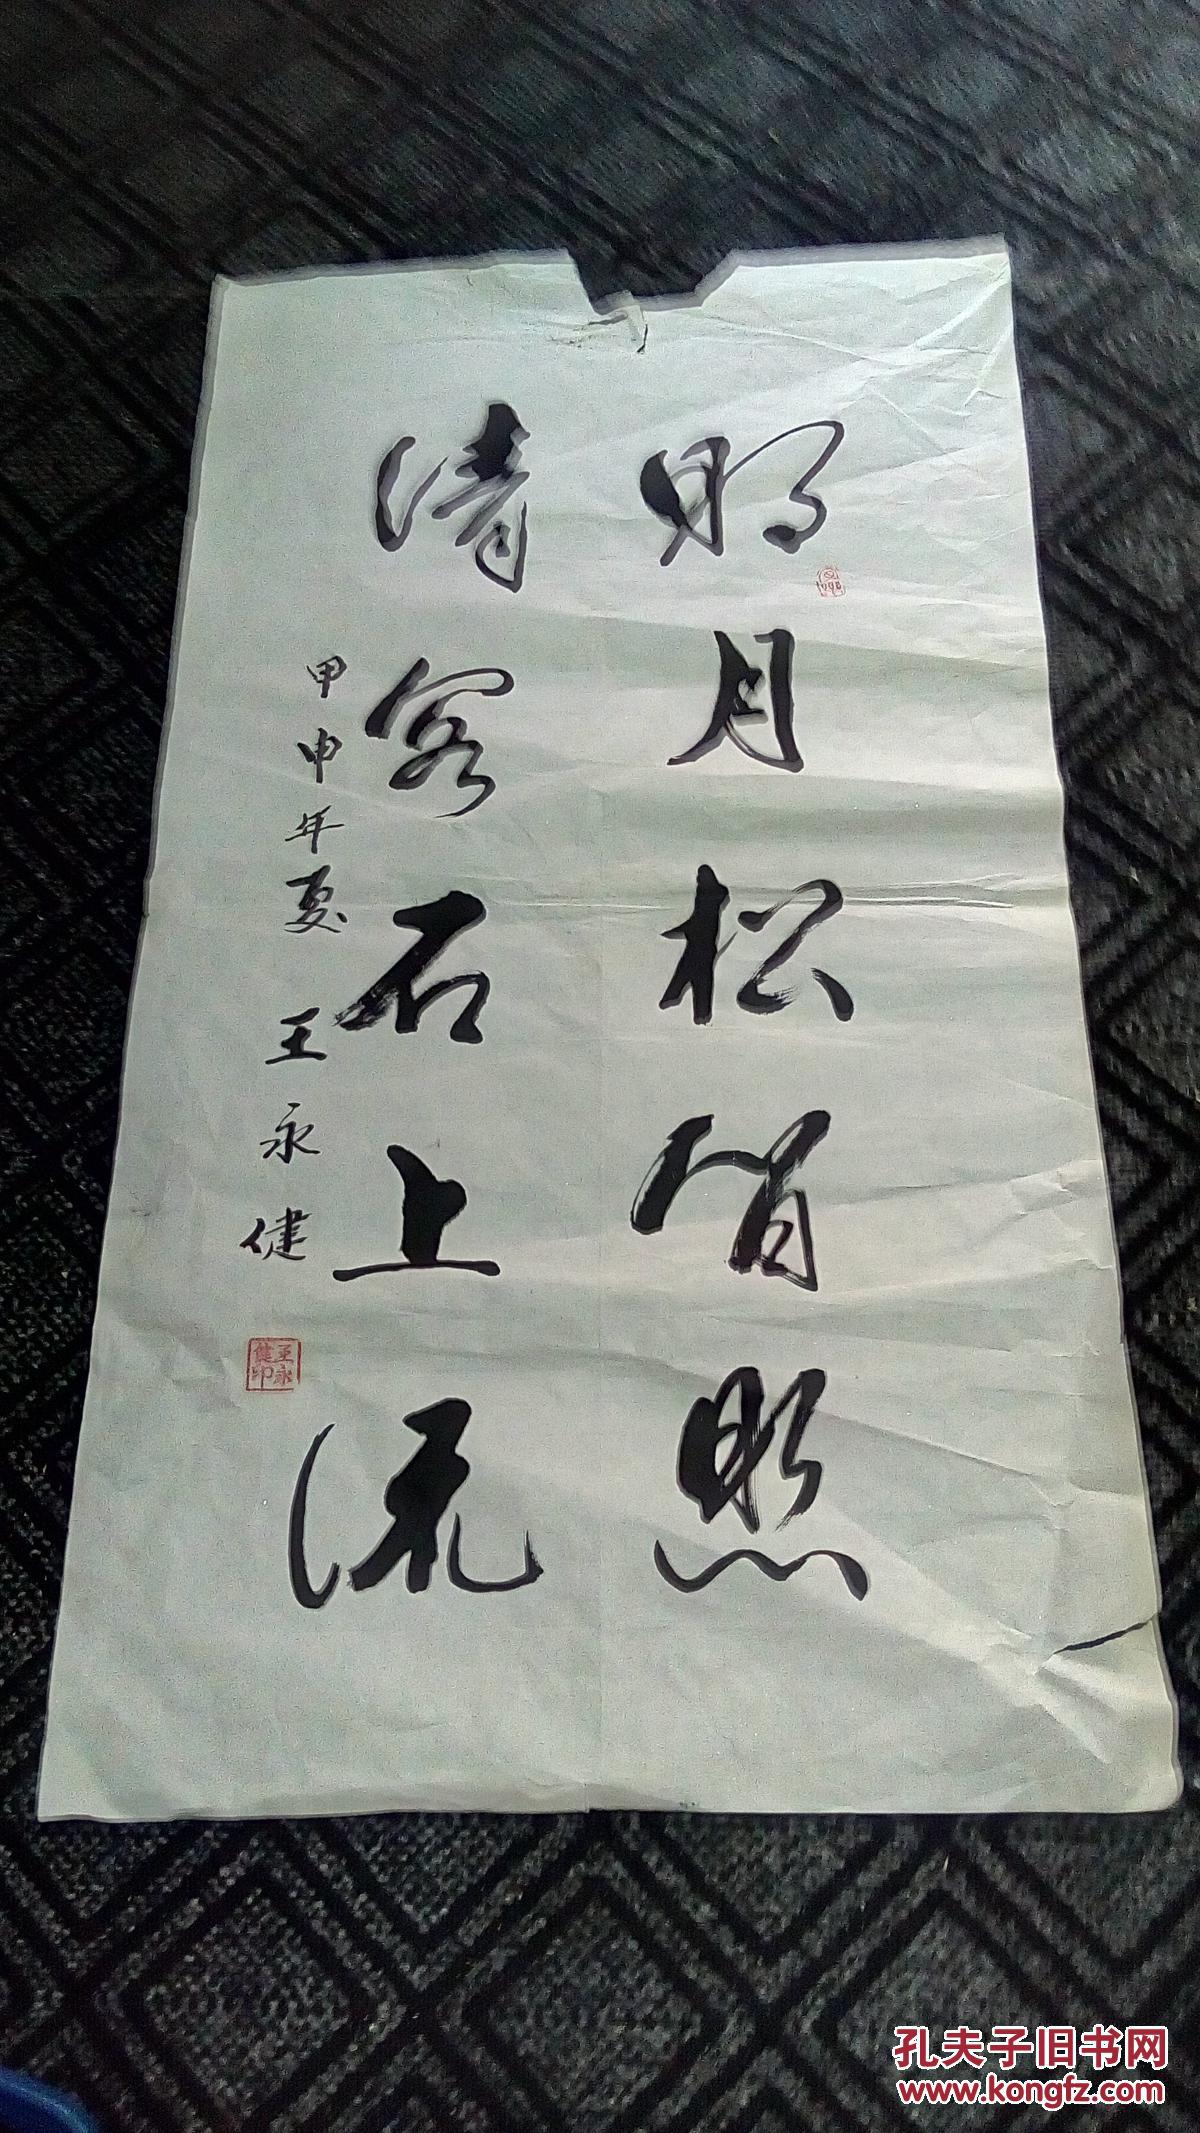 明月松间照
清客石上流
甲申年夏 王永健
王永健印
孔夫子旧书网
www.kongfz.com